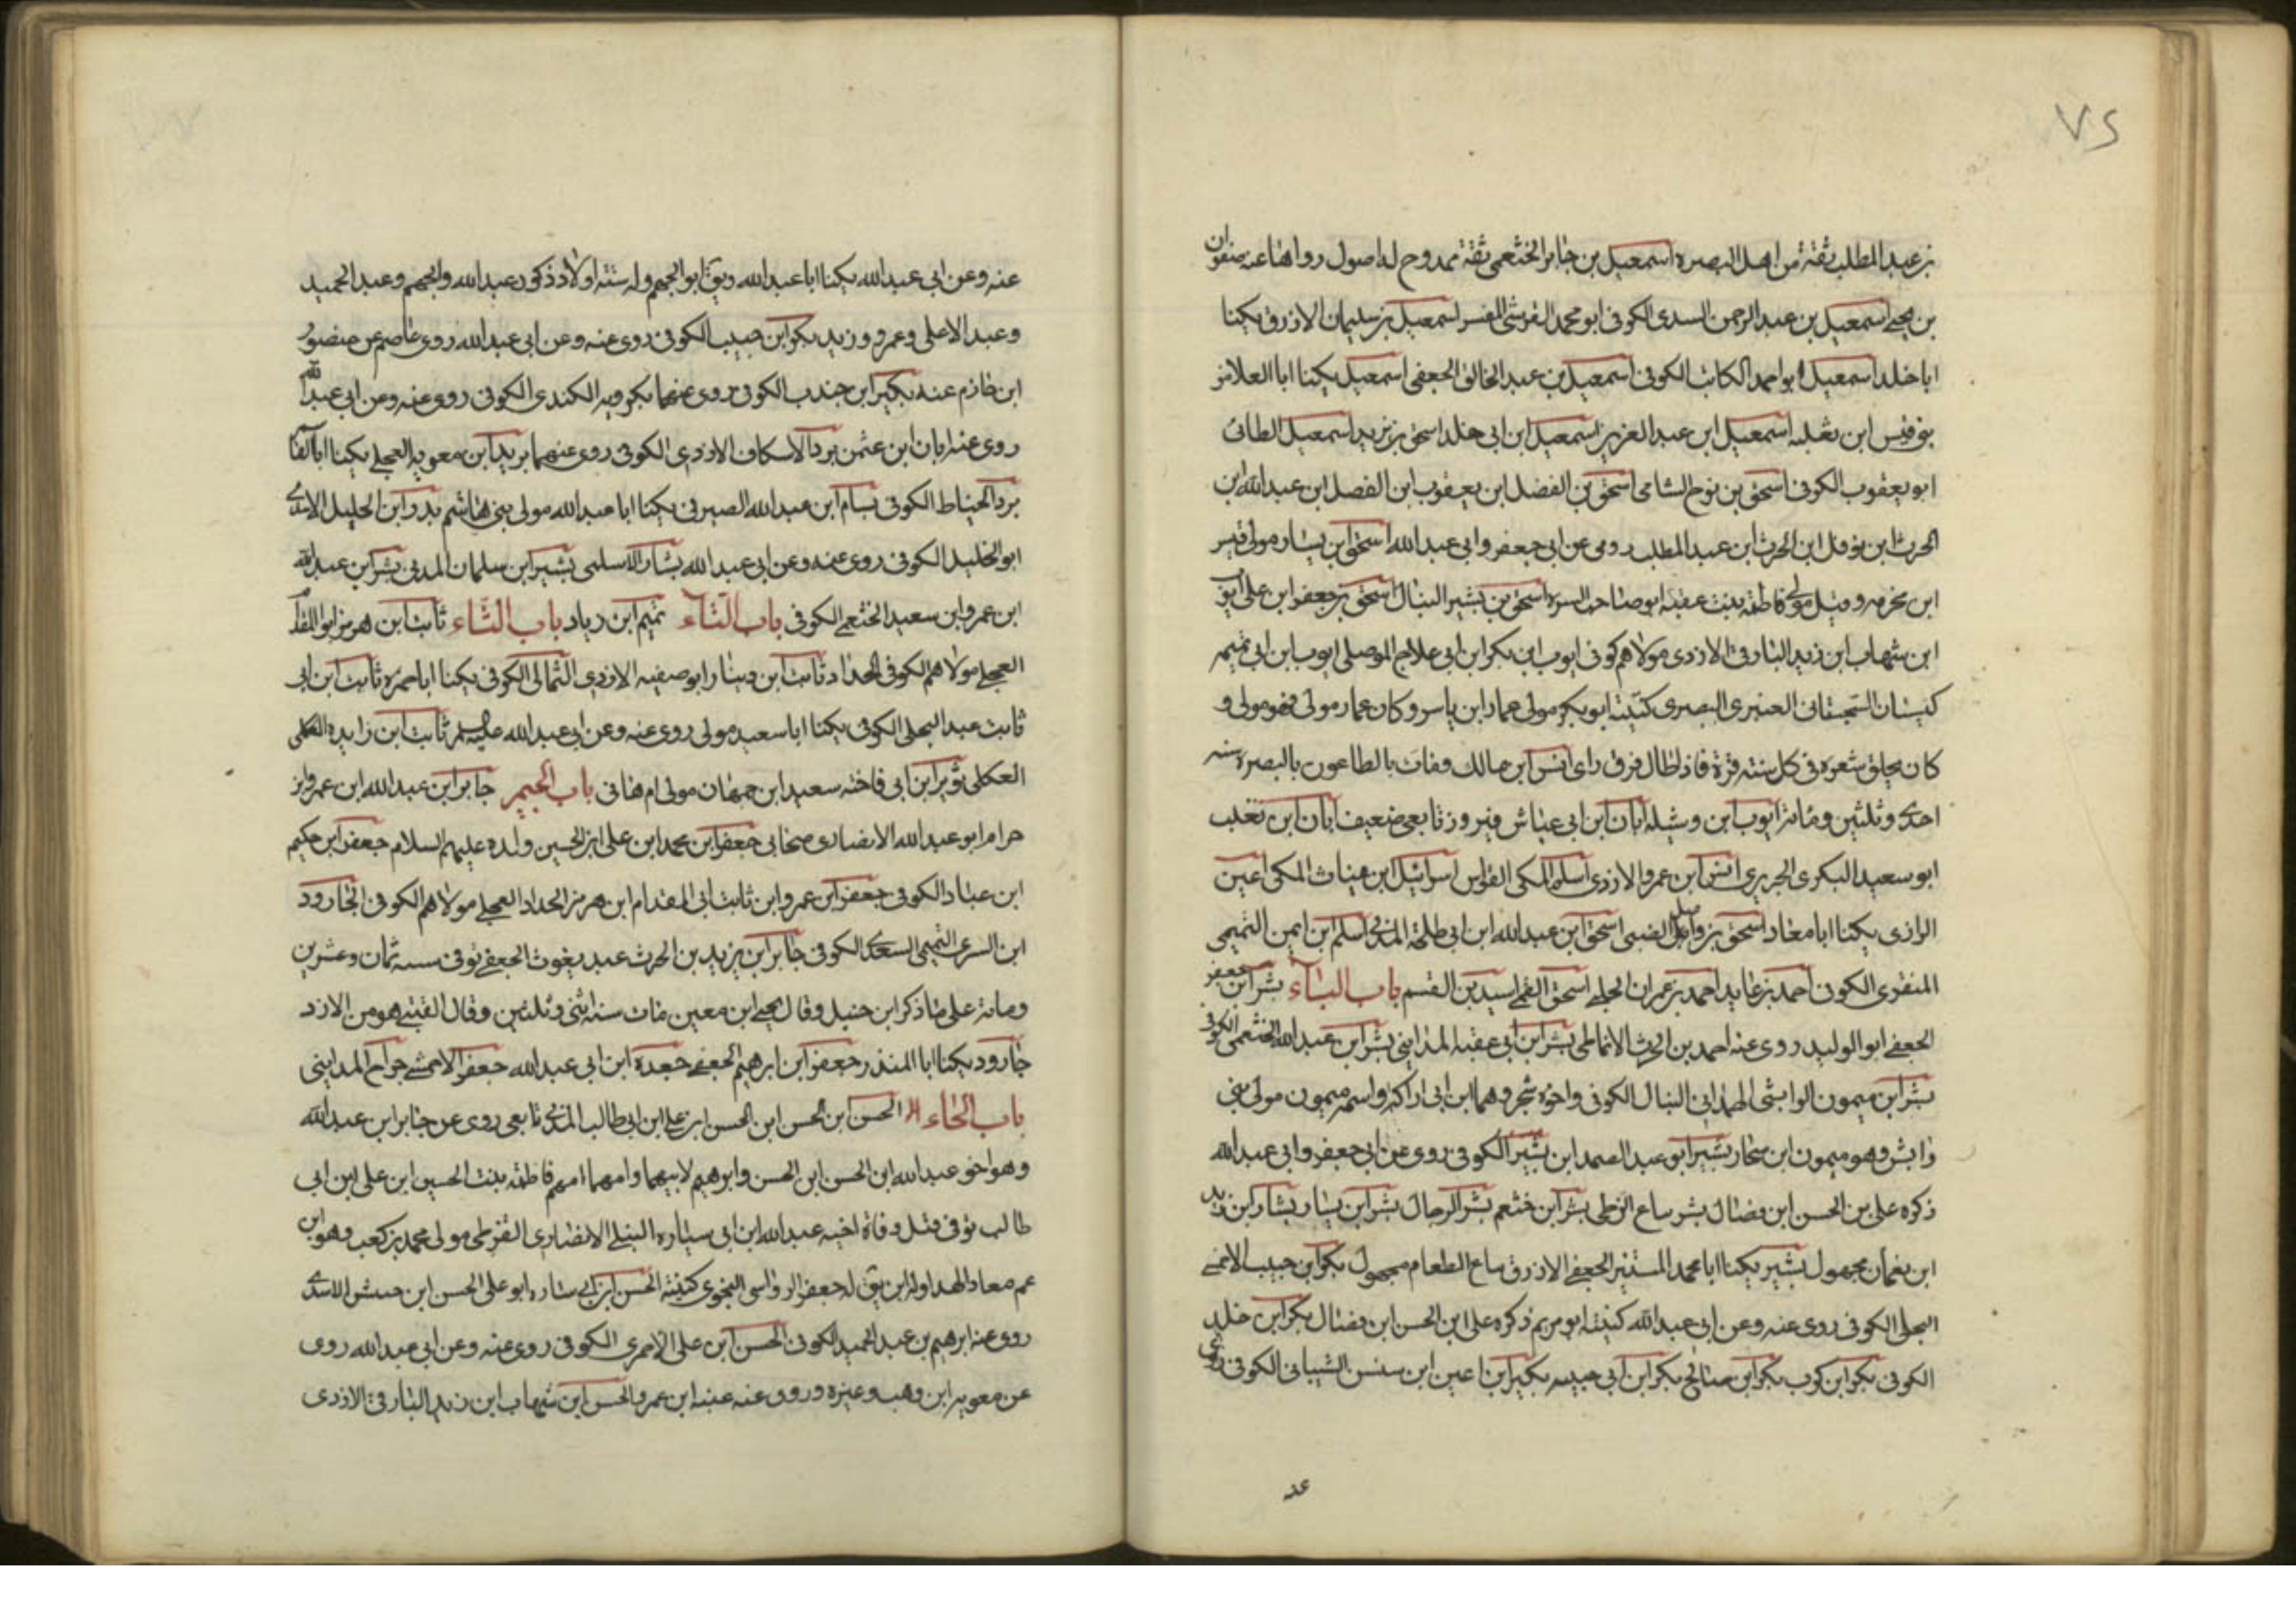 ٧٢
بن عبد المطلب ثقة من اهل البصره اسمعيل بن جابر الخثعمى ثقة ممدوح له اصول رواها عنه صفوان
بن يحيى اسمعيل بن عبد الرحمن السدى الكوفى ابو محمد القرشى المفسر اسمعيل بن سليمان الازرق يكنا
ابا خلد اسمعيل ابو احمد الكاتب الكوفى اسمعيل بن عبد الخالق الجعفى اسمعيل يكنا ابا العلا من
بنو قيس ابن ثعلبه اسمعيل ابن عبد العزيز اسمعيل ابن ابى خلد اسحق بن يزيد اسمعيل الطائى
ابو يعقوب الكوفى اسحق بن نوح الشامى اسحق بن الفضل ابن يعقوب ابن الفضل ابن عبد الله ابن
الحرث ابن نوفل ابن الحرث ابن عبد المطلب روى عن ابى جعفر وابى عبد الله اسحق ابن يسار مولى قيس
ابن مخرمه وقيل مولى فاطمه بنت عقبه ابو صاحب السره اسحق بن بشير النبال اسحق بن جعفر ابن على ايوب
ابن شهاب ابن زيد البارقى الازدى مولاهم كوفى ايوب ابن بكر ابن ابى علاج الموصلى ايوب ابن ابى تميمه
كيسان السجستانى العنبرى البصرى كنيته ابو بكر مولى عمار ابن ياسر وكان عمار مولى فهو مولى و
كان يحلق شعره فى كل سنته مرة فاذا طال فرق راى انس ابن مالك ومات بالطاعون بالبصره سنه
احدى وثلثين ومائة ايوب ابن وشيله ابان ابن ابى عياش فيروز تابعى ضعيف ابان ابن تغلب
ابو سعيد البكرى الجريرى انس ابن عمرو الازدى اسلم المكى القواس اسرائيل ابن غياث المكى اعين
الرازى يكنا ابا معاد اسحق بن واصل الضبى اسحق ابن عبد الله ابن ابى طلحة المدنى اسلم ابن ايمن التميمى
المنقرى الكوفى احمد بن عايد احمد بن عمران الحلبى اسحق القمى اسيد بن القسم باب الباء بشر ابن جعفر
الجعفى ابو الوليد روى عنه احمد بن الحرث الانماطى بشر ابن ابى عقبه المداينى بشر ابن عبد الله الخثعمى الكوفى
بشر ابن ميمون الوابشى الهمدانى النبال الكوفى واخوه شجره وهما ابن ابى اراكه واسمه ميمون مولى بنى
وابش وهو ميمون ابن سنجار بشير ابو عبد الصمد ابن بشير الكوفى روى عن ابى جعفر وابى عبد الله
ذكره على بن الحسن ابن فضال بشر بياع الزطى بشر ابن خثعم بشر الرحال بشر ابن يسار بشار ابن زيد
ابن نعمان مجهول بشير يكنا ابا محمد المستنير الجعفى الازرق بياع الطعام مجهول بكر ابن حبيب الاحمسى
البجلى الكوفى روى عنه وعن ابى عبد الله كنيته ابو مريم ذكره على ابن الحسن ابن فضال بكر ابن خلد
الكوفى بكر ابن كرب بكر ابن صالح بكر ابن ابى حبيبه بكير ابن اعين ابن سنسن الشيبانى الكوفى روى
عنه وعن ابى عبد الله يكنا ابا عبد الله ويق ابو الجهم وله ستة اولاد ذكور عبد الله والجهم وعبد الحميد
وعبد الاعلى وعمرو وزيد بكر ابن حبيب الكوفى روى عنه وعن ابى عبد الله روى عاصم عن منصور
ابن حازم عنه بكير ابن جندب الكوفى روى عنهما بكرويه الكندى الكوفى روى عنه وعن ابى عبد الله
روى عنه ابان ابن عثمن برد الاسكاف الازدى الكوفى روى عنهما بريد ابن معويه العجلى يكنا ابا القا
برد الخياط الكوفى بسام ابن عبد الله الصيرفى يكنا ابا عبد الله مولى بنى هاشم بدر ابن الخليل الاسدى
ابو الخليد الكوفى روى عنه وعن ابى عبد الله بشار الاسلمى بشير ابن سلمان المدنى بشر ابن عبد الله
ابن عمرو ابن سعيد الخثعمى الكوفى باب التاء تميم ابن زياد باب الثاء ثابت ابن هرمز ابو المقدا
العجلى مولاهم الكوفى الحداد ثابت ابن دينار ابو صفيه الازدى الثمالى الكوفى يكنا ابا حمزه ثابت ابن ابى
ثابت عبد البجلى الكوفى يكنا ابا سعيد مولى روى عنه وعن ابى عبد الله عليه السلم ثابت ابن زايده العكلى
العكلى ثوير ابن ابى فاخته سعيد ابن جهمان مولى ام هانى باب الجيم جابر ابن عبد الله ابن عمرو بن
حرام ابو عبد الله الانصارى صحابى جعفر ابن محمد ابن على ابن الحسين ولده عليهم السلام جعفر ابن حكيم
ابن عباد الكوفى جعفر ابن عمرو ابن ثابت ابى المقدام ابن هرمز الحداد العجلى مولاهم الكوفى الجارود
ابن السرى التميمى السعدى الكوفى جابر ابن يزيد بن الحرث عبد يغوث الجعفى توفى سنه ثمان وعشرين
ومائة على ما ذكر ابن حنبل وقال يحيى ابن معين مات سنه اثنى وثلثين وقال القتيبى هو من الازد
جارود يكنا ابا المنذر جعفر ابن ابرهيم الجعفى جعده ابن ابى عبد الله جعفر الاحمشى جراح المداينى
باب الحاء الحسن ابن الحسن ابن الحسن ابن على ابن ابى طالب المدنى تابعى روى عن جابر ابن عبد الله
وهو اخو عبد الله ابن الحسن ابن الحسن وابرهيم لابيهما وامهما امهم فاطمه بنت الحسين ابن على ابن ابى
طالب توفى قبل وفاة اخيه عبد الله ابن ابى ساره النيلى الانصارى القرظى مولى محمد بن كعب وهو ابن
عم معاد الهدا وله ابن يق له جعفر الرواسى النحوى كنيته الحسن ابن ابى ساره ابو على الحسن ابن حبيش الاسدى
روى عنه ابرهيم بن عبد الحميد الكوفى الحسن ابن على الاحمرى الكوفى روى عنه وعن ابى عبد الله روى
عن معويه ابن وهب وغيره وروى عنه عبد ابن عمرو الحسن ابن شهاب ابن زيد البارقى الازدى